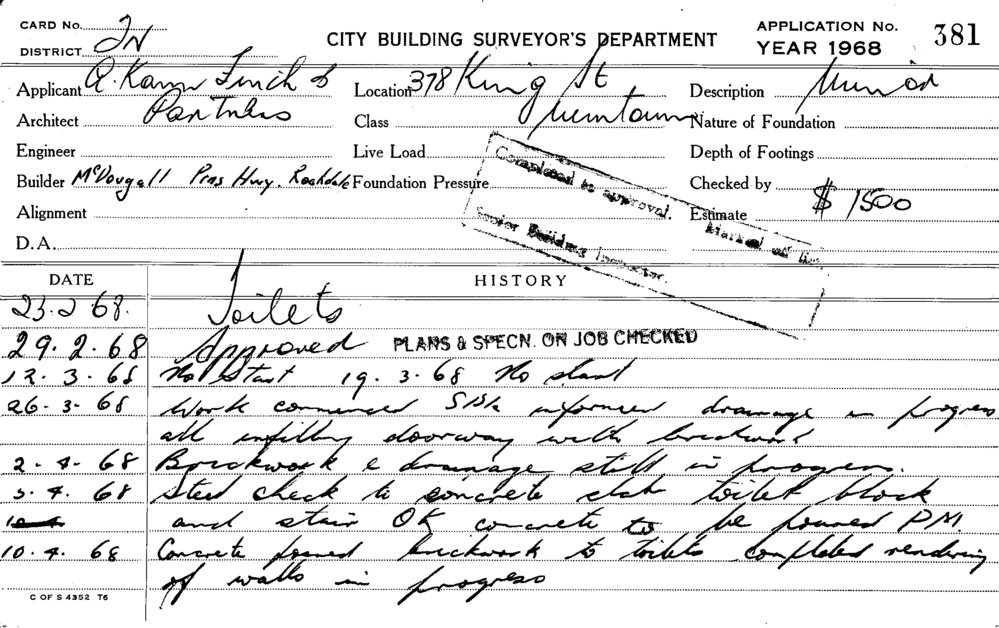 CARD No.
DISTRICT. IN
CITY BUILDING SURVEYOR'S DEPARTMENT
APPLICATION No. 381
YEAR 1968
Applicant Kann Finch &
Location 378 King St
Description Minor
Architect Partners
Class Newtown
Nature of Foundation
Engineer
Live Load
Depth of Footings
Builder McDougall Prns Hwy. Rockdale
Foundation Pressure
Checked by
Alignment
Estimate $ 1500
D.A.
Completed to approval.
Marked off
Senior Building Inspector.
DATE HISTORY
23.2 68. Toilets
29.2.68 Approved PLANS & SPECN. ON JOB CHECKED
12.3.68 No Start 19.3.68 No start
26.3.68 Work commenced informed drainage in progress
all infilling doorway with brickwork
2.4.68 Brickwork & drainage still in progress.
5.4.68 Steel check to concrete slab toilet block
and stair OK concrete to be poured PM
10.4.68 Concrete poured brickwork to toilets completed rendering
of walls in progress
C OF S 4352 T6